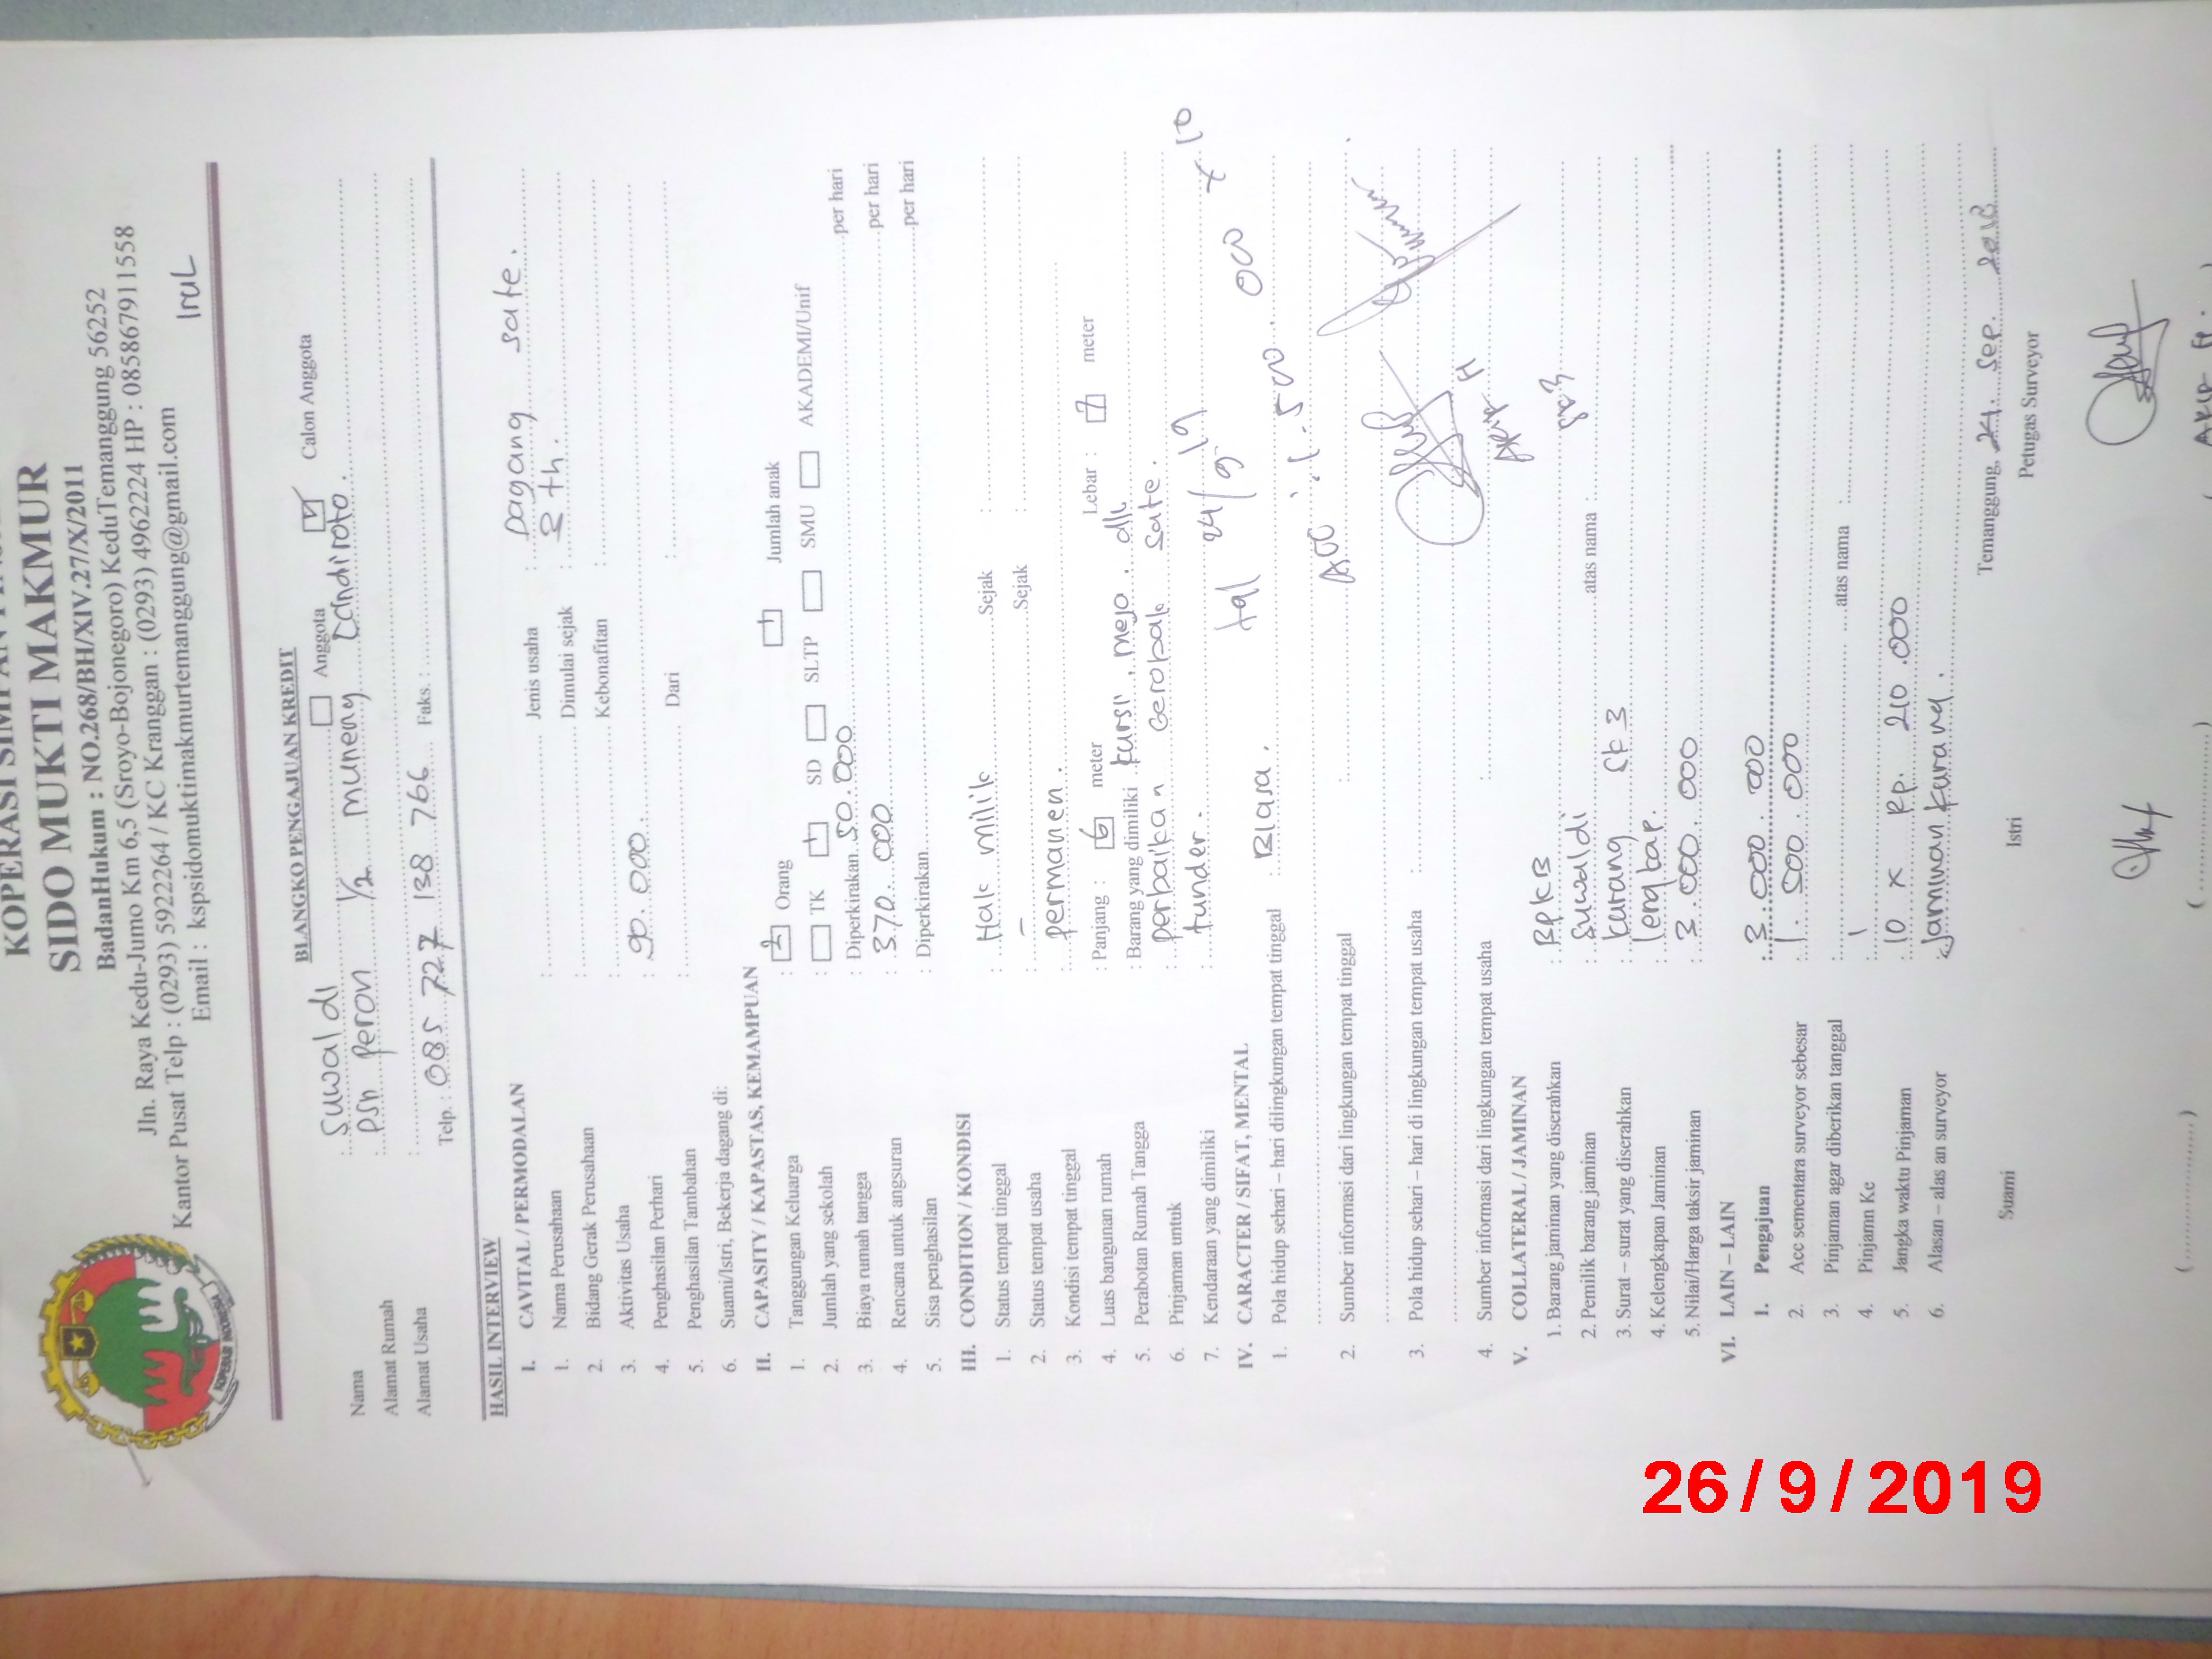 KOPERASI SIMPAN
SIDO MUKTI MAKMUR
BadanHukum : NO.268/BH/XIV.27/X/2011
Jln. Raya Kedu-Jumo Km 6,5 (Sroyo-Bojonegoro) KeduTemanggung 56252
Kantor Pusat Telp : (0293) 5922264 / KC Kranggan : (0293) 4962224 HP : 085867911558
Email : kspsidomuktimakmurtemanggung@gmail.com
Irul
KOPERASI INDONESIA
BLANGKO PENGAJUAN KREDIT
Nama : Suwaldi Anggota Calon Anggota
Alamat Rumah : Dsn Peron 1/2 Muneng Candiroto.
Alamat Usaha :
Telp. : 085 727 138 766 Faks. :
HASIL INTERVIEW
I. CAVITAL / PERMODALAN
1. Nama Perusahaan : Jenis usaha : Dagang sate.
2. Bidang Gerak Perusahaan : Dimulai sejak : 2 th.
3. Aktivitas Usaha : Kebonafitan :
4. Penghasilan Perhari : 90.000.
5. Penghasilan Tambahan : Dari :
6. Suami/Istri, Bekerja dagang di:
II. CAPASITY / KAPASTAS, KEMAMPUAN
1. Tanggungan Keluarga : Orang Jumlah anak
2. Jumlah yang sekolah : TK 1 SD SLTP SMU AKADEMI/Unif
3. Biaya rumah tangga : Diperkirakan 50.000 per hari
4. Rencana untuk angsuran : 370.000 per hari
5. Sisa penghasilan : Diperkirakan per hari
III. CONDITION / KONDISI
1. Status tempat tinggal : Hak milik Sejak :
2. Status tempat usaha : - Sejak :
3. Kondisi tempat tinggal : permanen.
4. Luas bangunan rumah : Panjang : 6 meter Lebar : 7 meter
5. Perabotan Rumah Tangga : Barang yang dimiliki kursi, mejo. dll
6. Pinjaman untuk : perbaikan Gerobak sate.
7. Kendaraan yang dimiliki : tunder.
tgl 24/9 19
IV. CARACTER / SIFAT, MENTAL
1. Pola hidup sehari – hari dilingkungan tempat tinggal : Biasa.
ACC : 1.500.000 x 10
2. Sumber informasi dari lingkungan tempat tinggal :
3. Pola hidup sehari – hari di lingkungan tempat usaha :
4. Sumber informasi dari lingkungan tempat usaha :
V. COLLATERAL / JAMINAN
1. Barang jaminan yang diserahkan : BPKB
2. Pemilik barang jaminan : Suwaldi atas nama
3. Surat – surat yang diserahkan : kurang
4. Kelengkapan Jaminan : lengkap.
5. Nilai/Harga taksir jaminan : 3.000.000
VI. LAIN – LAIN
1. Pengajuan : 3.000.000
2. Acc sementara surveyor sebesar : 1.500.000
3. Pinjaman agar diberikan tanggal : atas nama :
4. Pinjamn Ke : 1
5. Jangka waktu Pinjaman : 10 x Rp. 210.000
6. Alasan – alas an surveyor : Jaminan kurang.
Temanggung, 24 Sep.
Suami Istri Petugas Surveyor
26/9/2019